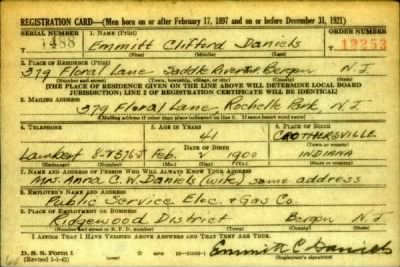 REGISTRATION CARD—(Men born on or after February 17, 1897 and on or before December 31, 1921)
SERIAL NUMBER 1. NAME (Print) ORDER NUMBER
1488 Emmitt Clifford Daniels 12253
(First) (Middle) (Last)
2. PLACE OF RESIDENCE (Print)
279 Floral Lane Saddle River Twp. Bergen N.J.
(Number and street) (Town, township, village, or city) (County) (State)
[THE PLACE OF RESIDENCE GIVEN ON THE LINE ABOVE WILL DETERMINE LOCAL BOARD
JURISDICTION; LINE 2 OF REGISTRATION CERTIFICATE WILL BE IDENTICAL]
3. MAILING ADDRESS
279 Floral Lane, Rochelle Park, N.J.
[Mailing address if other than place indicated on line 2. If same insert word same]
4. TELEPHONE 5. AGE IN YEARS 6. PLACE OF BIRTH
41 CROTHERSVILLE
DATE OF BIRTH (Town or county)
Lambert 8-2576J Feb. 2 1900 INDIANA
(Exchange) (Number) (Mo.) (Day) (Yr.) (State or country)
7. NAME AND ADDRESS OF PERSON WHO WILL ALWAYS KNOW YOUR ADDRESS
Mrs. Anna C. W. Daniels (wife) same address
8. EMPLOYER'S NAME AND ADDRESS
Public Service Elec. + Gas Co.
9. PLACE OF EMPLOYMENT OR BUSINESS
Ridgewood District Bergen N.J.
(Number and street or R. F. D. number) (Town) (County) (State)
I AFFIRM THAT I HAVE VERIFIED ABOVE ANSWERS AND THAT THEY ARE TRUE.
D. S. S. Form 1 Emmitt C. Daniels
(Revised 1-1-42) (over)